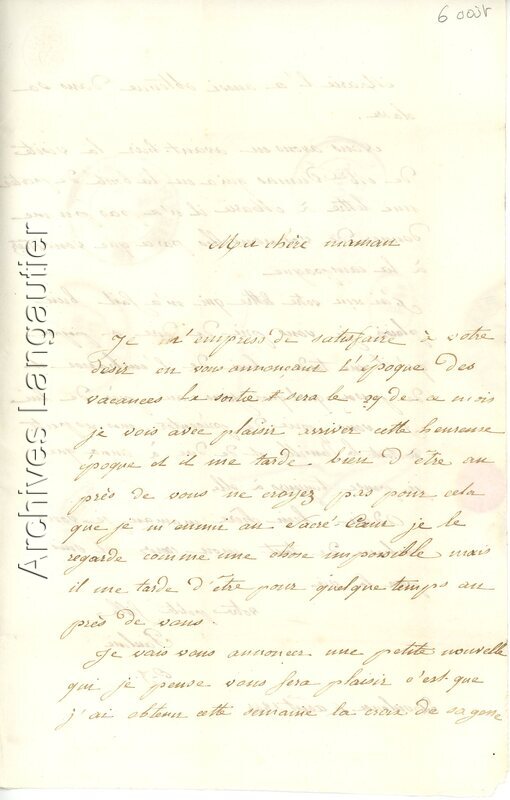 6 août
Ma chère maman
Je m'empresse de satisfaire à votre
désir en vous annoncant l'époque des
vacances la sortie sera le 29 de ce mois
je vois avec plaisir arriver cette heureuse
époque et il me tarde bien d'être au
près de vous ne croyez pas pour cela
que je m'ennui au Sacré Cœur je le
regarde comme une chose impossible mais
il me tarde d'être pour quelque temps au
près de vous.
Je vais vous annoncer une petite nouvelle
qui je pense vous fera plaisir c'est que
j'ai obtenu cette semaine la croix de sagesse
Archives Langautier